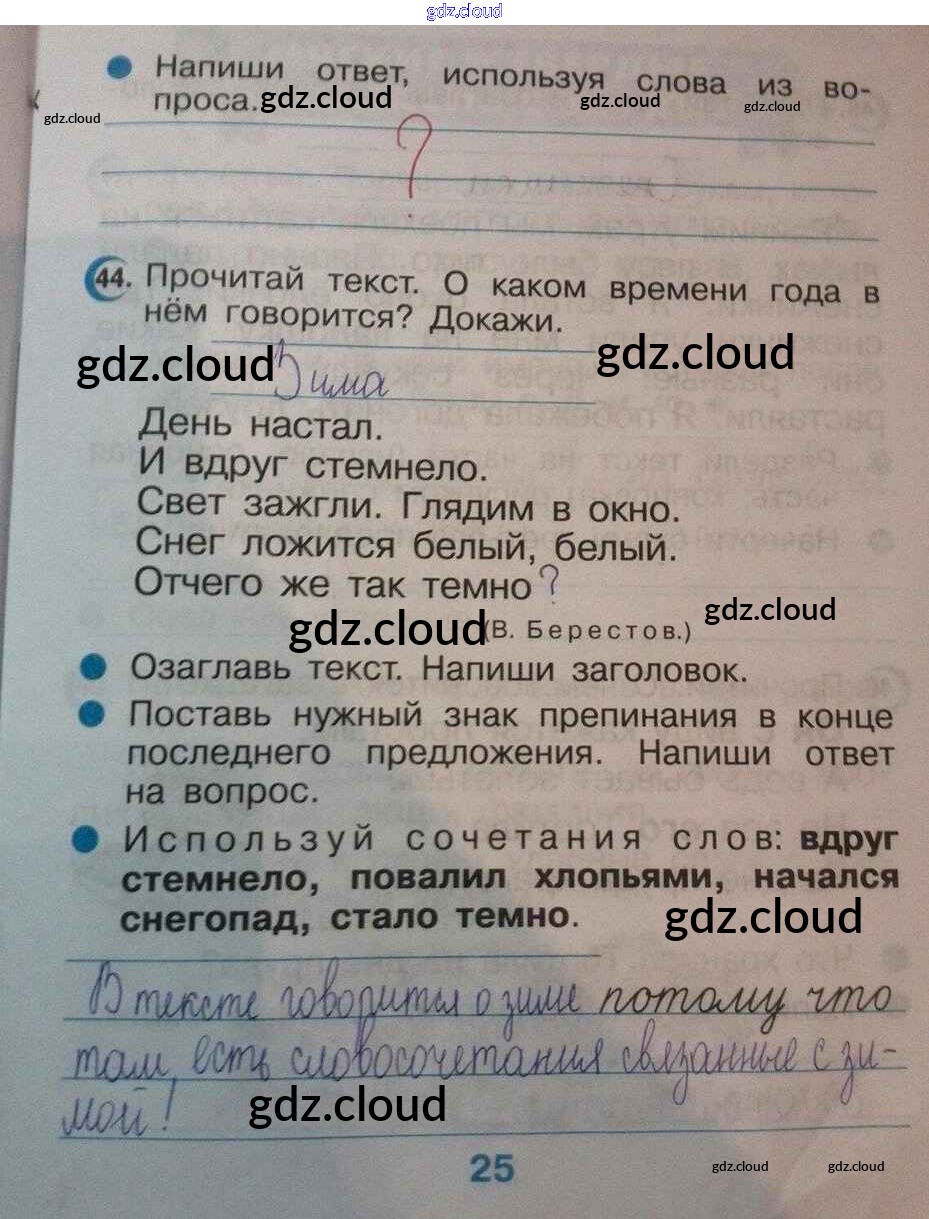 gdz.cloud
Напиши ответ, используя слова из во-
проса. gdz.cloud gdz.cloud gdz.cloud
gdz.cloud
?
44. Прочитай текст. О каком времени года в
нём говорится? Докажи.
gdz.cloud gdz.cloud
Зима
День настал.
И вдруг стемнело.
Свет зажгли. Глядим в окно.
Снег ложится белый, белый.
Отчего же так темно?
gdz.cloud
gdz.cloud (В. Берестов.)
Озаглавь текст. Напиши заголовок.
Поставь нужный знак препинания в конце
последнего предложения. Напиши ответ
на вопрос.
Используй сочетания слов: вдруг
стемнело, повалил хлопьями, начался
снегопад, стало темно.
gdz.cloud
В тексте говорится о зиме потому что
там, есть словосочетания связанные с зи-
мой!
gdz.cloud
25
gdz.cloud gdz.cloud